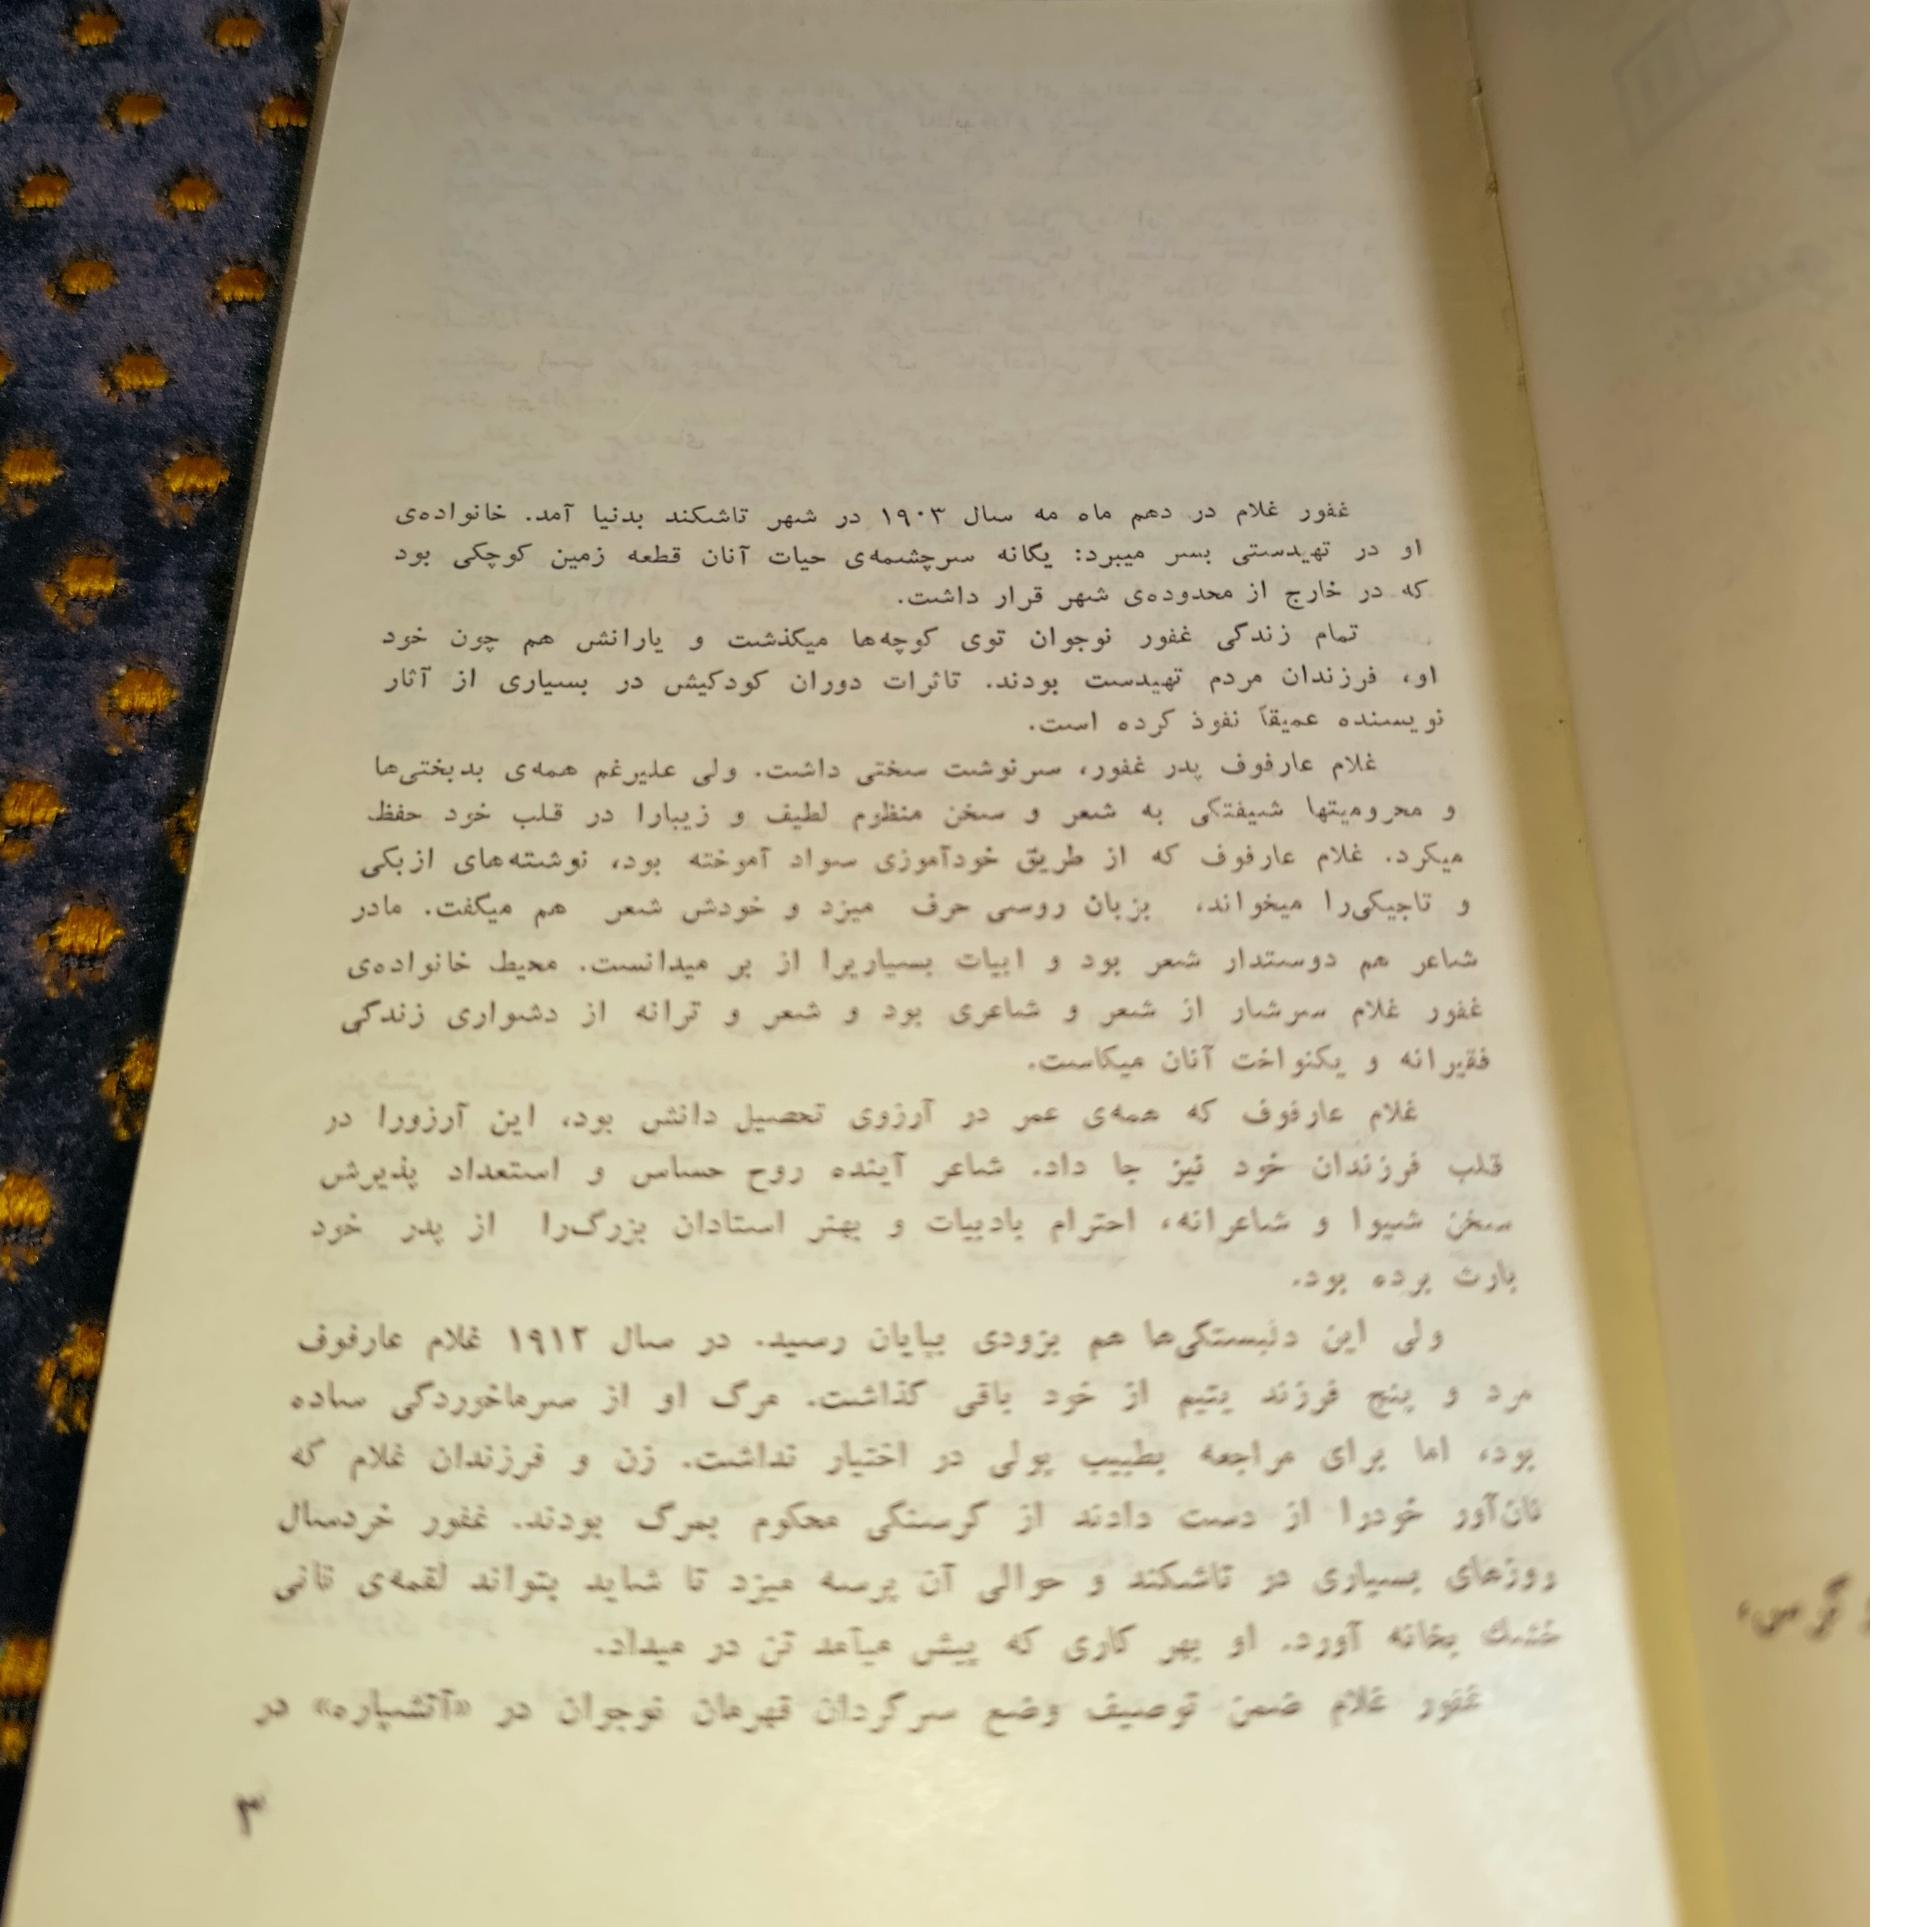 غفور غلام در دهم ماه مه سال ۱۹۰۳ در شهر تاشکند بدنیا آمد. خانواده‌ی
او در تهیدستی بسر میبرد: یگانه سرچشمه‌ی حیات آنان قطعه زمین کوچکی بود
که در خارج از محدوده‌ی شهر قرار داشت.
تمام زندگی غفور نوجوان توی کوچه‌ها میگذشت و یارانش هم چون خود
او، فرزندان مردم تهیدست بودند. تاثرات دوران کودکیش در بسیاری از آثار
نویسنده عمیقاً نفوذ کرده است.
غلام عارفوف پدر غفور، سرنوشت سختی داشت. ولی علیرغم همه‌ی بدبختی‌ها
و محرومیتها شیفتگی به شعر و سخن منظوم لطیف و زیبارا در قلب خود حفظ
میکرد. غلام عارفوف که از طریق خودآموزی سواد آموخته بود، نوشته‌های ازبکی
و تاجیکی‌را میخواند، بزبان روسی حرف میزد و خودش شعر هم میگفت. مادر
شاعر هم دوستدار شعر بود و ابیات بسیاریرا از بر میدانست. محیط خانواده‌ی
غفور غلام سرشار از شعر و شاعری بود و شعر و ترانه از دشواری زندگی
فقیرانه و یکنواخت آنان میکاست.
غلام عارفوف که همه‌ی عمر در آرزوی تحصیل دانش بود، این آرزورا در
قلب فرزندان خود نیز جا داد. شاعر آینده روح حساس و استعداد پذیرش
سخن شیوا و شاعرانه، احترام بادبیات و بهنر استادان بزرگ‌را از پدر خود
بارث برده بود.
ولی این دلبستگی‌ها هم بزودی بپایان رسید. در سال ۱۹۱۲ غلام عارفوف
مرد و پنج فرزند یتیم از خود باقی گذاشت. مرگ او از سرماخوردگی ساده
بود، اما برای مراجعه بطبیب پولی در اختیار نداشت. زن و فرزندان غلام که
نان‌آور خودرا از دست دادند از گرسنگی محکوم بمرگ بودند. غفور خردسال
روزهای بسیاری در تاشکند و حوالی آن پرسه میزد تا شاید بتواند لقمه‌ی نانی
خشك بخانه آورد. او بهر کاری که پیش میآمد تن در میداد.
غفور غلام ضمن توصیف وضع سرگردان قهرمان نوجوان در «آتشپاره» در
۳